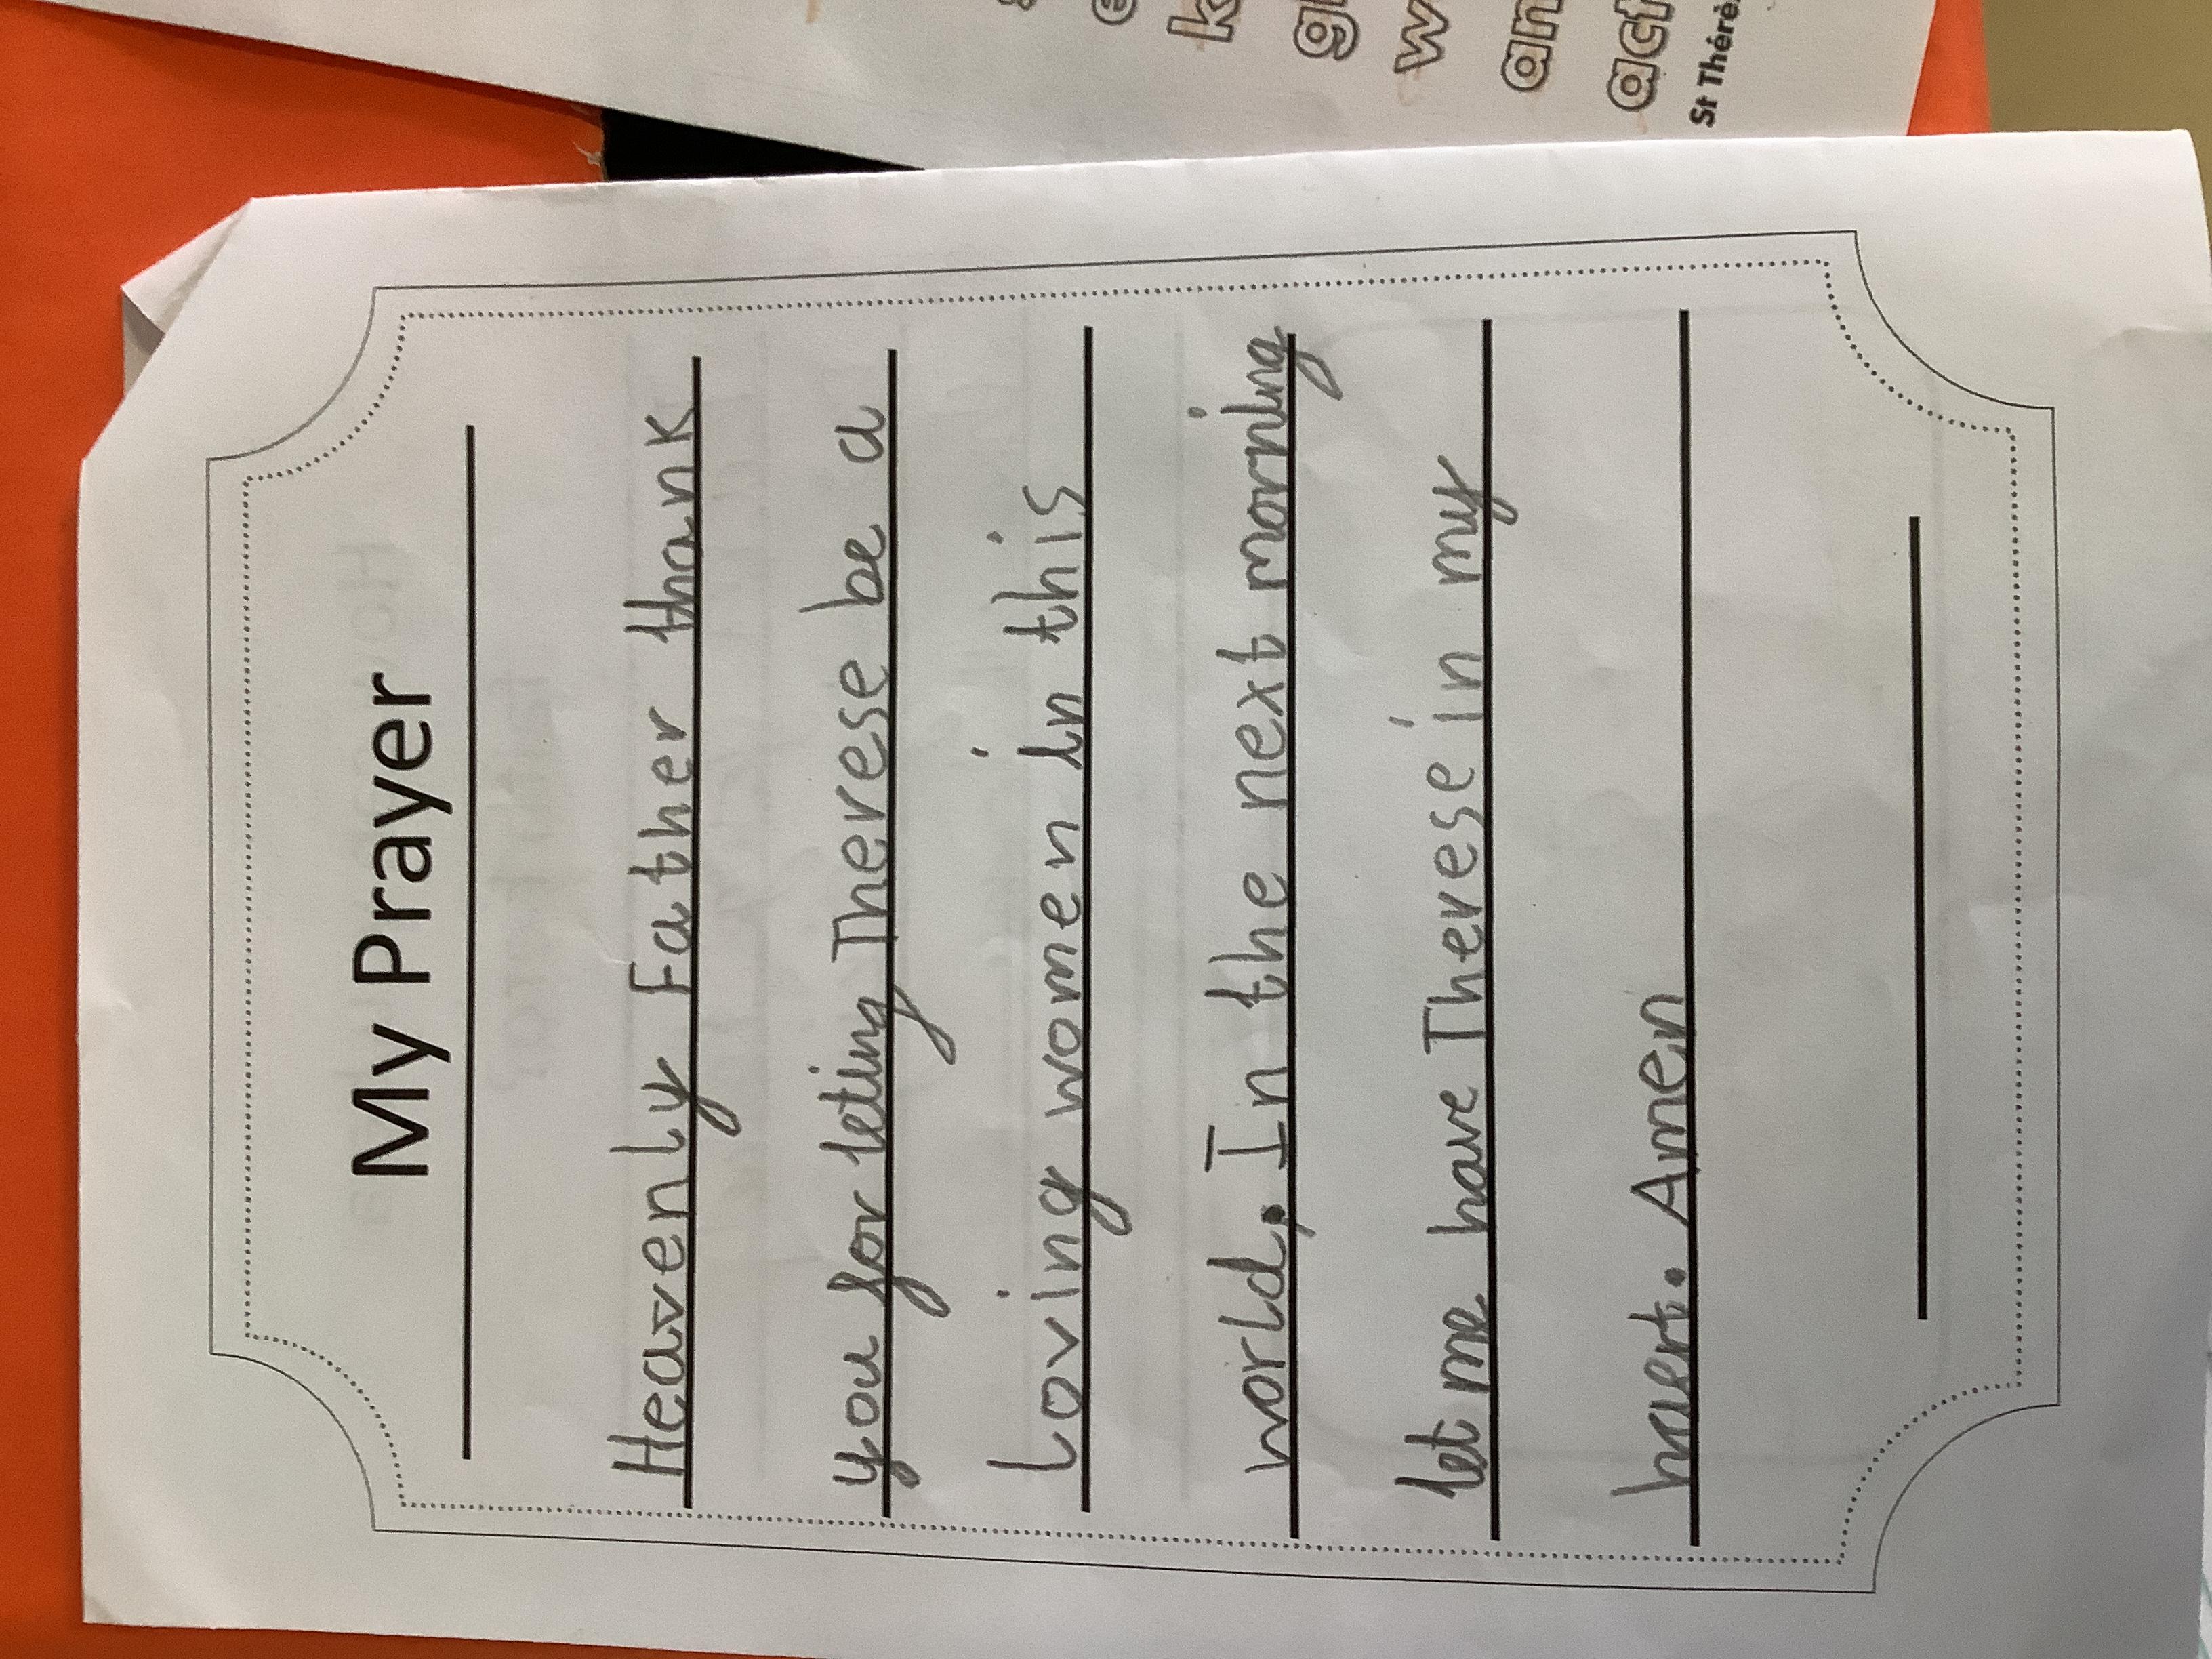 My Prayer
Heavenly Father thank
you for leting Therese be a
loving women in this
world. In the next morning
let me have Therese in my
haert. Amen
k
w
an
act
St Thérè